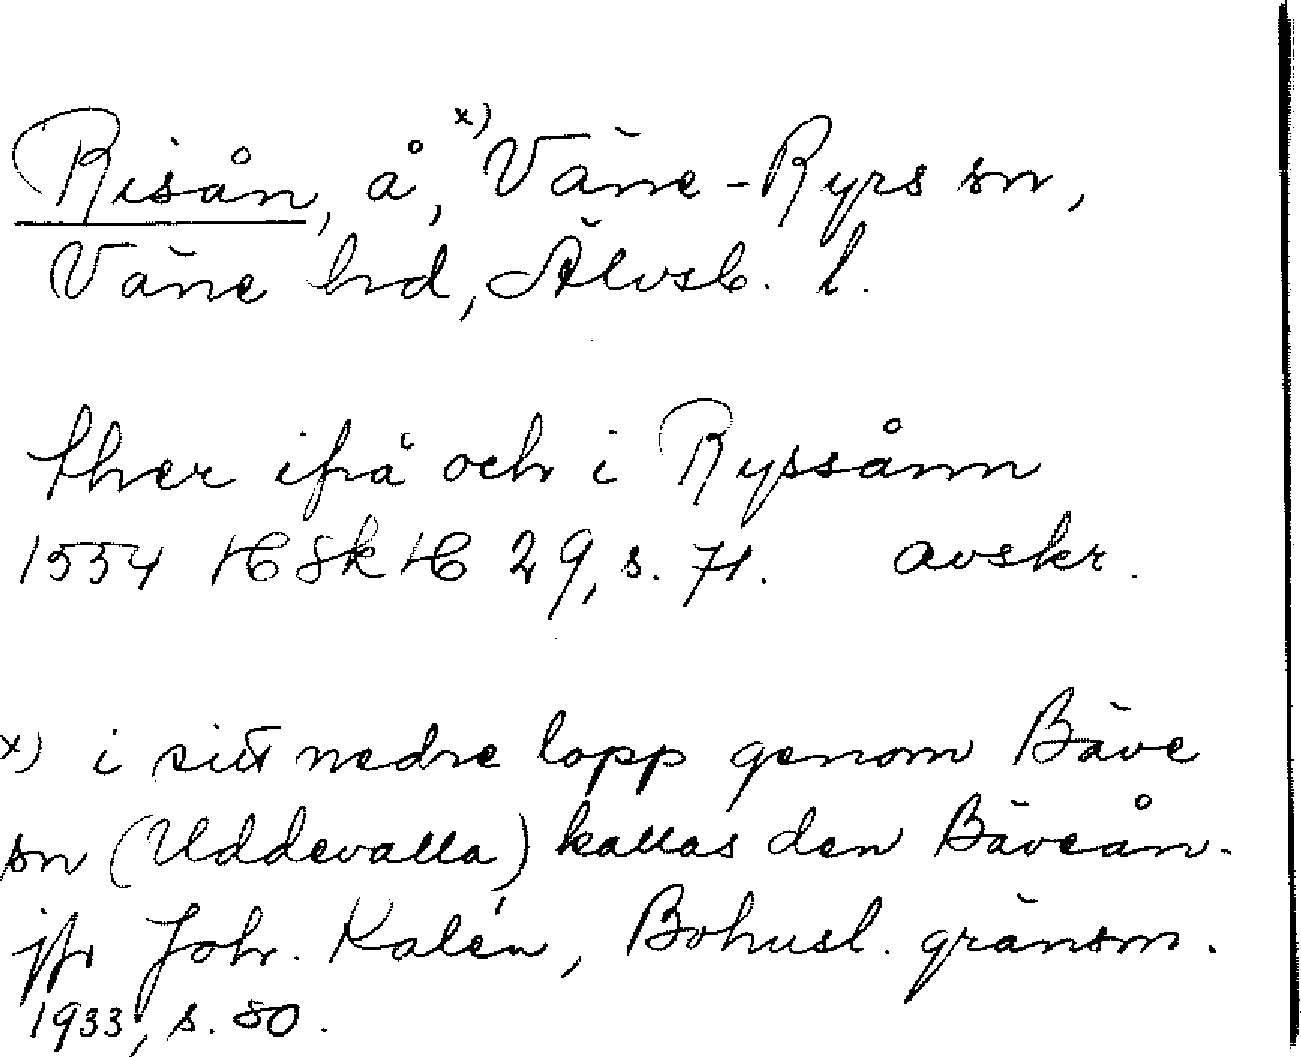 Risån, å, x) Väne-Ryrs sn,
Väne hd, Älvsb. l.
ther ifrå och i Ryssånn
1554 HSkH 29, s. 71. avskr.
x) i sitt nedre lopp genom Bäve
sn (Uddevalla) kallas den Bäveån.
jfr Joh. Kalén, Bohusl. gränsm.
1933, s. 80.